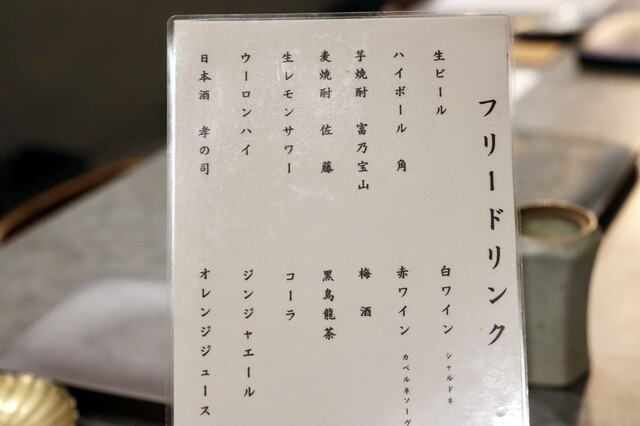 フリードリンク
生ビール
ハイボール 角
芋焼酎 富乃宝山
麦焼酎 佐藤
生レモンサワー
ウーロンハイ
日本酒 孝の司
白ワイン シャルドネ
赤ワイン カベルネソーヴ
梅酒
黒烏龍茶
コーラ
ジンジャエール
オレンジジュース